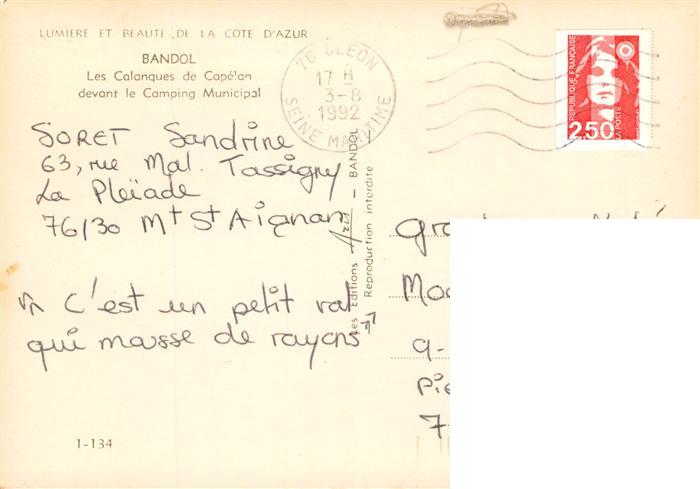 LUMIERE ET BEAUTE DE LA COTE D'AZUR
BANDOL
Les Calanques de Capélan
devant le Camping Municipal
76 CLEON
17 H
3-8
1992
SEINE MARITIME
REPUBLIQUE FRANÇAISE
2,50
LA POSTE
SORET Sandrine
63, rue Mal. Tassigny
La Pleïade
76130 Mt St Aignan
"C'est un petit val
qui mousse de rayons"
Les Editions Aris - BANDOL
Reproduction interdite
1-134